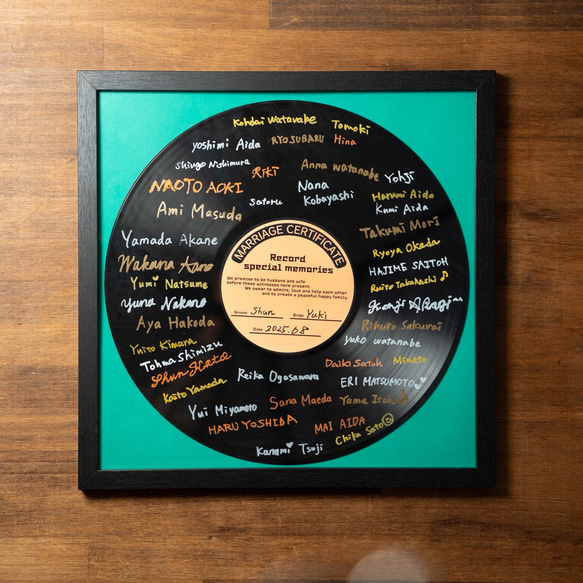 Kohdai Watanabe
Tomoki
yoshimi Aida
RYOJUBARU
Hina
Shingo Nishimura
RiKi
Anna watanabe
Yohji
NAOTO AOKI
Satoru
Nana
Kobayashi
Harumi Aida
Kumi Aida
Ami Masuda
Takumi Mori
Yamada Akane
MARRIAGE CERTIFICATE
Ryoya Okada
Record
special memories
HAJIME SAITOH
Yumi Natsume
We promise to be husband and wife
before these witnesses here present.
We swear to admire, love and help each other
and to create a peaceful happy family.
Ruito Takahashi ♪
Yuna Nakano
Groom Shun Bride Yuki
Aya Hakoda
Date 2025.6.8
Rikuto Sakurai
Yuito Kimura
yuko watanabe
Tohma Shimizu
Daiki Satoh
Minato
Shun Kato
Reika Ogasawara
ERI MATSUMOTO
Koito Yamada
Sana Maeda
Yui Miyamoto
HARU YOSHIDA
MAI AIDA
Chika Sato
Kanami Tsuji